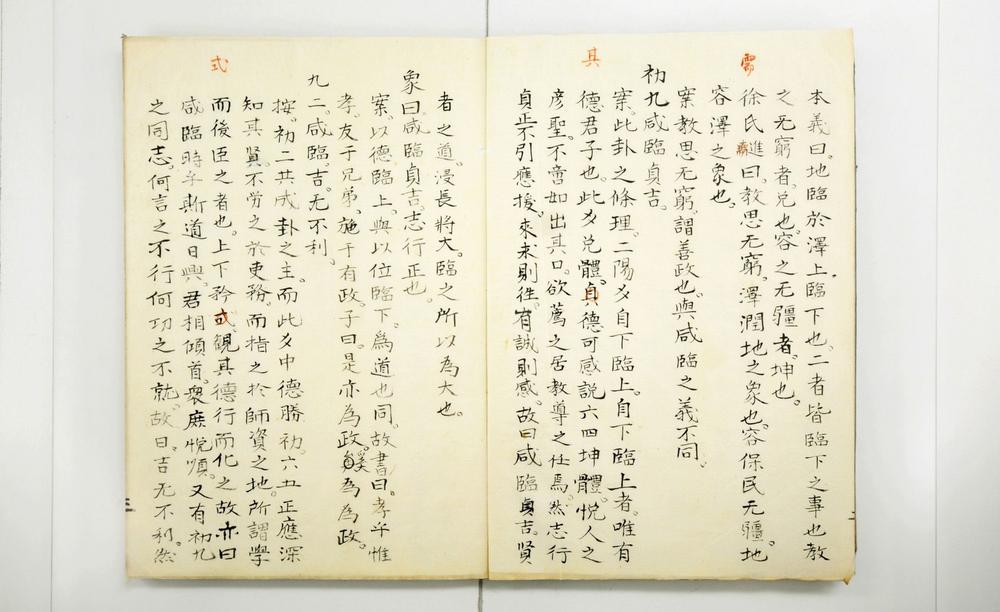 本義曰。地臨於澤上臨下也、二者皆臨下之事也教
之无窮者。兌也。容之无疆者。坤也。
徐氏進曰。教思无窮。澤潤地之象也。容保民无疆。地
容澤之象也。
案教思无窮。謂善政也。與咸臨之義不同。
初九咸臨貞吉。
案。此卦之條理。二陽爻自下臨上。自下臨上者。唯有
德君子也。此爻兌體。其德可感説六四坤體。悅人之
彦聖。不啻如出其口。欲薦之居教導之任焉。然志行
貞正不引應援。來求則往。有誠則感。故曰咸臨貞吉。賢
者之道。浸長將大。臨之所以為大也。
象曰。咸臨貞吉。志行正也。
案。以德臨上。與以位臨下。爲道也同。故書曰。孝乎惟
孝。友于兄弟。施于有政。子曰。是亦為政。奚為為政。
九二。咸臨。吉。无不利。
按。初二共成卦之主。而此爻中德勝初。六五正應深
知其賢。不勞之於吏務。而指之於師資之地。所謂學
而後臣之者也。上下矜式、觀其德行而化之故亦曰
咸臨時乎斯道日興。君相傾首。衆庶悅順。又有初九
之同志。何言之不行何功之不就。故曰。吉无不利。然
需
其
式